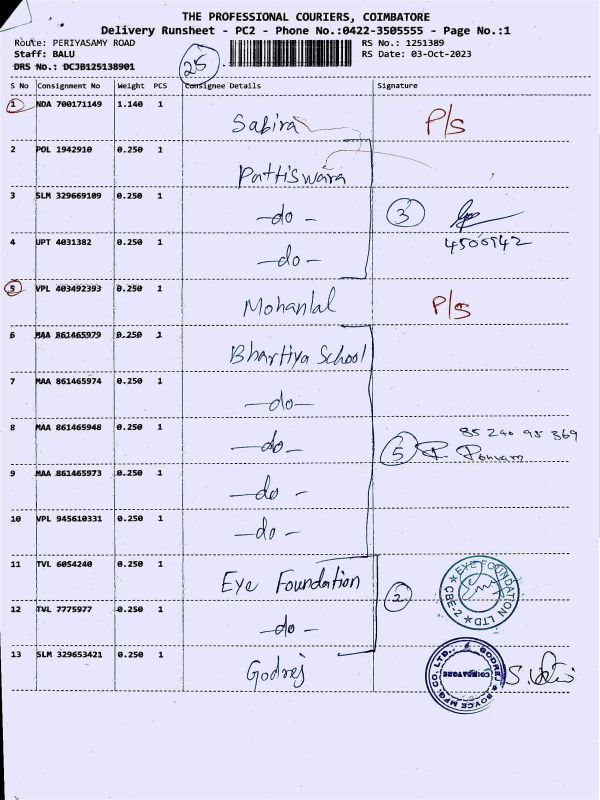 THE PROFESSIONAL COURIERS, COIMBATORE
Delivery Runsheet - PC2 - Phone No.:0422-3505555 - Page No.:1
Route: PERIYASAMY ROAD RS No.: 1251389
Staff: BALU RS Date: 03-Oct-2023
DRS No.: DCJB125138901 25
S No Consignment No Weight PCS Consignee Details Signature
1 NDA 700171149 1.140 1 Sabira P/s
2 POL 1942910 0.250 1 Pattiswara
3 SLM 329669109 0.250 1 -do- 3
4500942
4 UPT 4031382 0.250 1 -do-
5 VPL 403492393 0.250 1 Mohanlal P/s
6 MAA 861465979 0.250 1 Bhartiya School
7 MAA 861465974 0.250 1 -do-
8 MAA 861465948 0.250 1 -do- 5 85 240 95 369
9 MAA 861465973 0.250 1 -do-
10 VPL 945610331 0.250 1 -do-
11 TVL 6054240 0.250 1 Eye Foundation 2
EYE FOUNDATION LTD CBE-2
12 TVL 7775977 0.250 1 -do-
13 SLM 329653421 0.250 1 Godrej
GODREJ & BOYCE MFG. CO. LTD. COIMBATORE